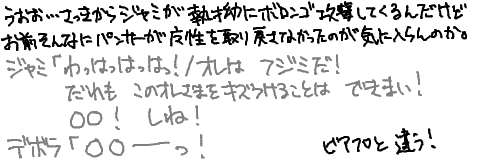 うおお…さっきからジャミが執拗にボロンゴ攻撃してくるんだけど
お前そんなにパンサーが魔性を取り戻さなかったのが気に入らんのか。
ジャミ「わっはっはっはっ！/オレは フジミだ！
だれも このオレさまをキズつけることは できまい！
○○！ しね！
デボラ「○○ーーっ！
ピアフロと違う！